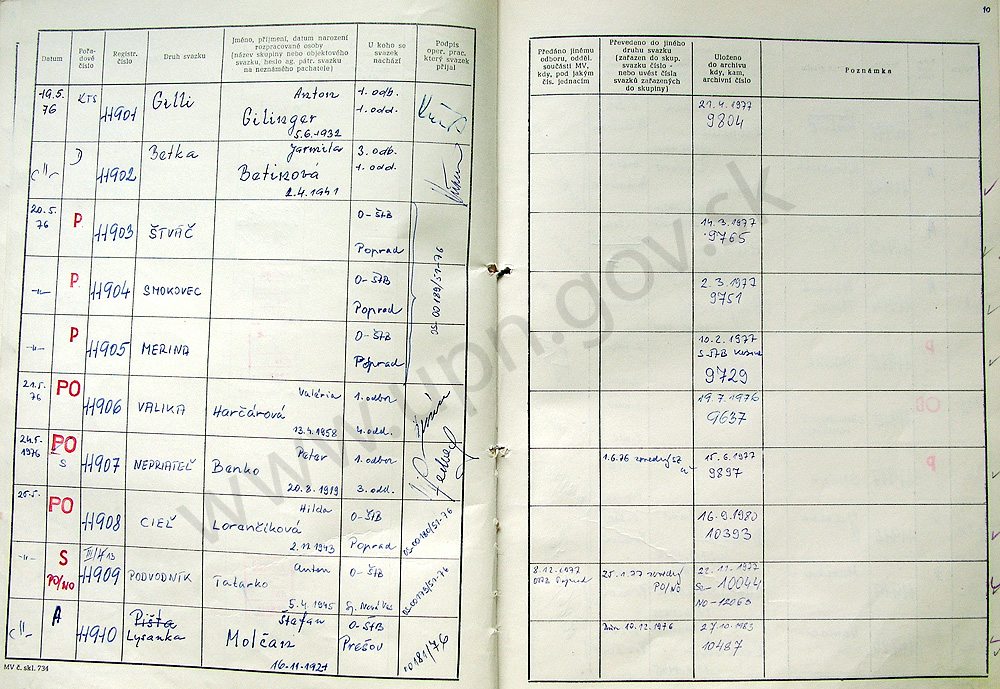 Datum
Pořa-
dové
číslo
Registr.
číslo
Druh svazku
Jméno, příjmení, datum narození
rozpracované osoby
(název skupiny nebo objektového
svazku, heslo ag. pátr. svazku
na neznámého pachatele)
U koho se
svazek
nachází
Podpis
oper. prac.
který svazek
přijal
19.5.
76
KTS
11901
Gilli
Anton
Gilinger
5.6.1932
1. odb.
1. odd.
D
11902
Betka
Jarmila
Betinová
2.4.1941
3. odb.
1. odd.
20.5.
76
P
11903
ŠTVÁČ
O-ŠtB
Poprad
P
11904
SMOKOVEC
O-ŠtB
Poprad
P
11905
MERINA
O-ŠtB
Poprad
OS-00189/51-76
21.5.
76
PO
11906
VALIKA
Valéria
Harčárová
13.4.1958
1. odbor
4. odd.
24.5.
1976
PO
S
11907
NEPRIATEĽ
Peter
Banko
20.8.1919
1. odbor
3. odd.
25.5.
PO
11908
CIEĽ
Hilda
Lorančíková
2.12.1943
O-ŠtB
Poprad
OS-00180/51-76
S
PO/NO
11909
PODVODNÍK
Anton
Tatarko
5.4.1945
O-ŠtB
Sp. Nová Ves
OS-00179/51-76
A
11910
Pišta
Lysanka
Štefan
Molčan
16.11.1921
O-ŠtB
Prešov
00181/76
MV č. skl. 734
10
Předáno jinému
odboru, odděl.
součásti MV,
kdy, pod jakým
čís. jednacím
Převedeno do jiného
druhu svazku
(zařazen do skup.
svazku číslo -
nebo uvést čísla
svazků zařazených
do skupiny)
Uloženo
do archivu
kdy, kam,
archivní číslo
Poznámka
21.4.1977
9804
14.3.1977
9765
2.3.1977
9751
10.2.1977
S-ŠtB
9729
19.7.1976
9637
1.6.76
15.6.1977
9897
16.9.1980
10393
8.12.1977
Poprad
25.1.77
PO/NO
22.11.1977
10044
NO-12063
10.12.1976
27.10.1983
10487
www.upn.gov.sk